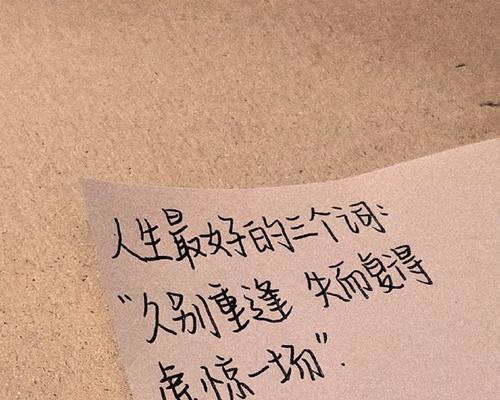 人生最好的三个词:
“久别重逢 失而复得
虚惊一场”.